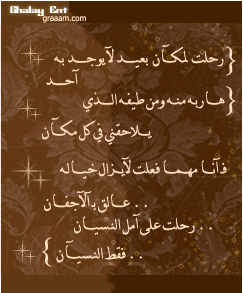 Ghalay Ent
graaam.com
{ رحلت لمكآن بعيد لآيوجد به
آحد
{ هاربه منه ومن طيفه الذي
يلاحقني في كل مكآن
فآنآ مهمآ فعلت لآيزال خياله
. . عالق بآلآجفان
. . رحلت على آمل النسيان
. . فقط النسيآن }